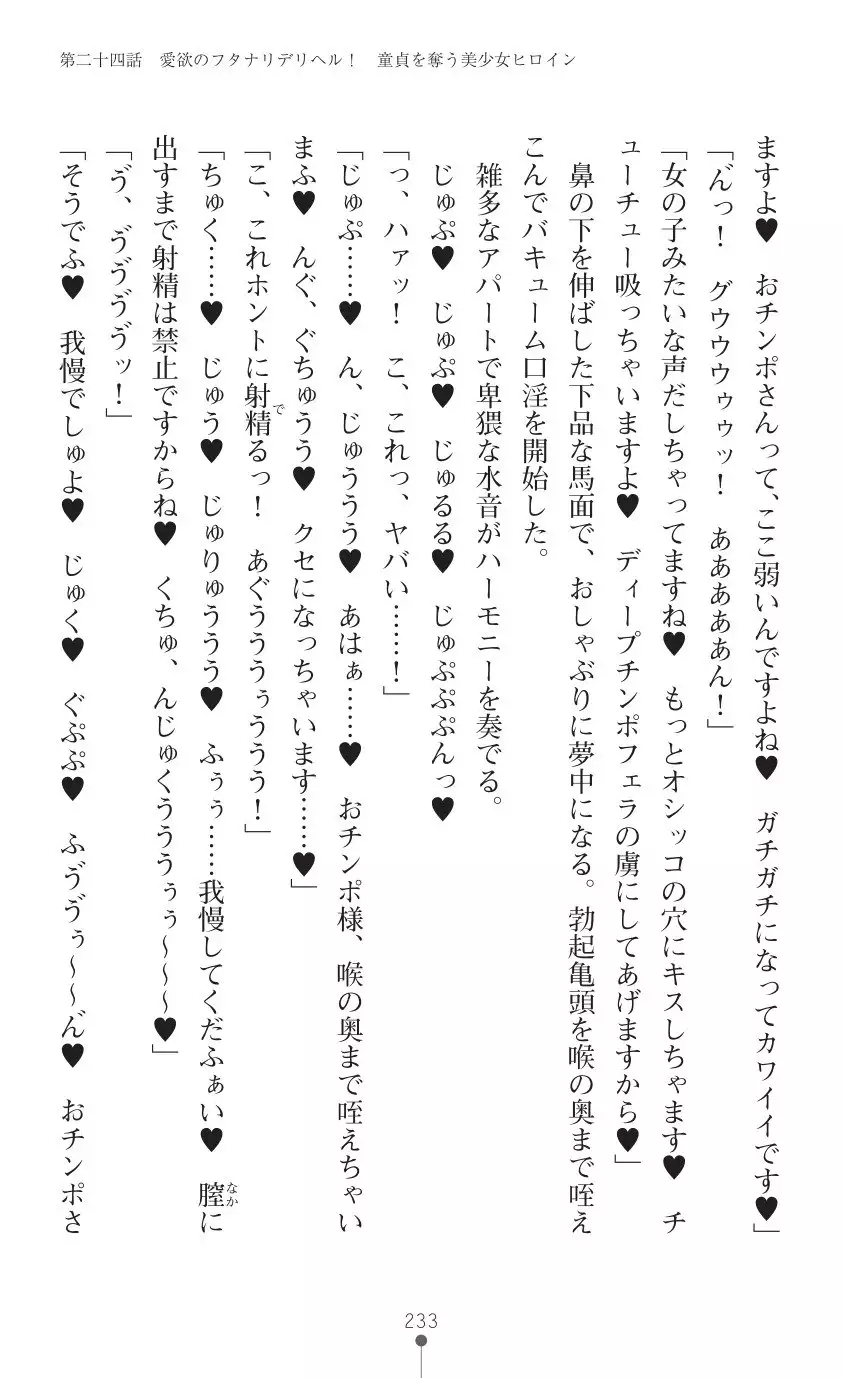 第二十四話　愛欲のフタナリデリヘル！　童貞を奪う美少女ヒロイン
ますよ♥　おチンポさんって、ここ弱いんですよね♥　ガチガチになってカワイイです♥」
「ん゛っ！　グウウウゥゥッ！　あああああん！」
「女の子みたいな声だしちゃってますね♥　もっとオシッコの穴にキスしちゃます♥　チ
ューチュー吸っちゃいますよ♥　ディープチンポフェラの虜にしてあげますから♥」
　鼻の下を伸ばした下品な馬面で、おしゃぶりに夢中になる。勃起亀頭を喉の奥まで咥え
こんでバキューム口淫を開始した。
　雑多なアパートで卑猥な水音がハーモニーを奏でる。
　じゅぷ♥　じゅぷ♥　じゅるる♥　じゅぷぷぷんっ♥
「っ、ハァッ！　こ、これっ、ヤバい……！」
「じゅぷ……♥　ん、じゅううう♥　あはぁ……♥　おチンポ様、喉の奥まで咥えちゃい
まふ♥　んぐ、ぐちゅうう♥　クセになっちゃいます……♥」
「こ、これホントに射精るっ！　あぐうううぅううう！」
で
「ちゅく……♥　じゅう♥　じゅりゅううう♥　ふぅぅ……我慢してくだふぁい♥　膣に
なか
出すまで射精は禁止ですからね♥　くちゅ、んじゅくうううぅぅ～～～♥」
「う゛、う゛う゛う゛う゛ッ！」
「そうでふ♥　我慢でしゅよ♥　じゅく♥　ぐぷぷ♥　ふう゛う゛ぅ～～ん゛♥　おチンポさ
233